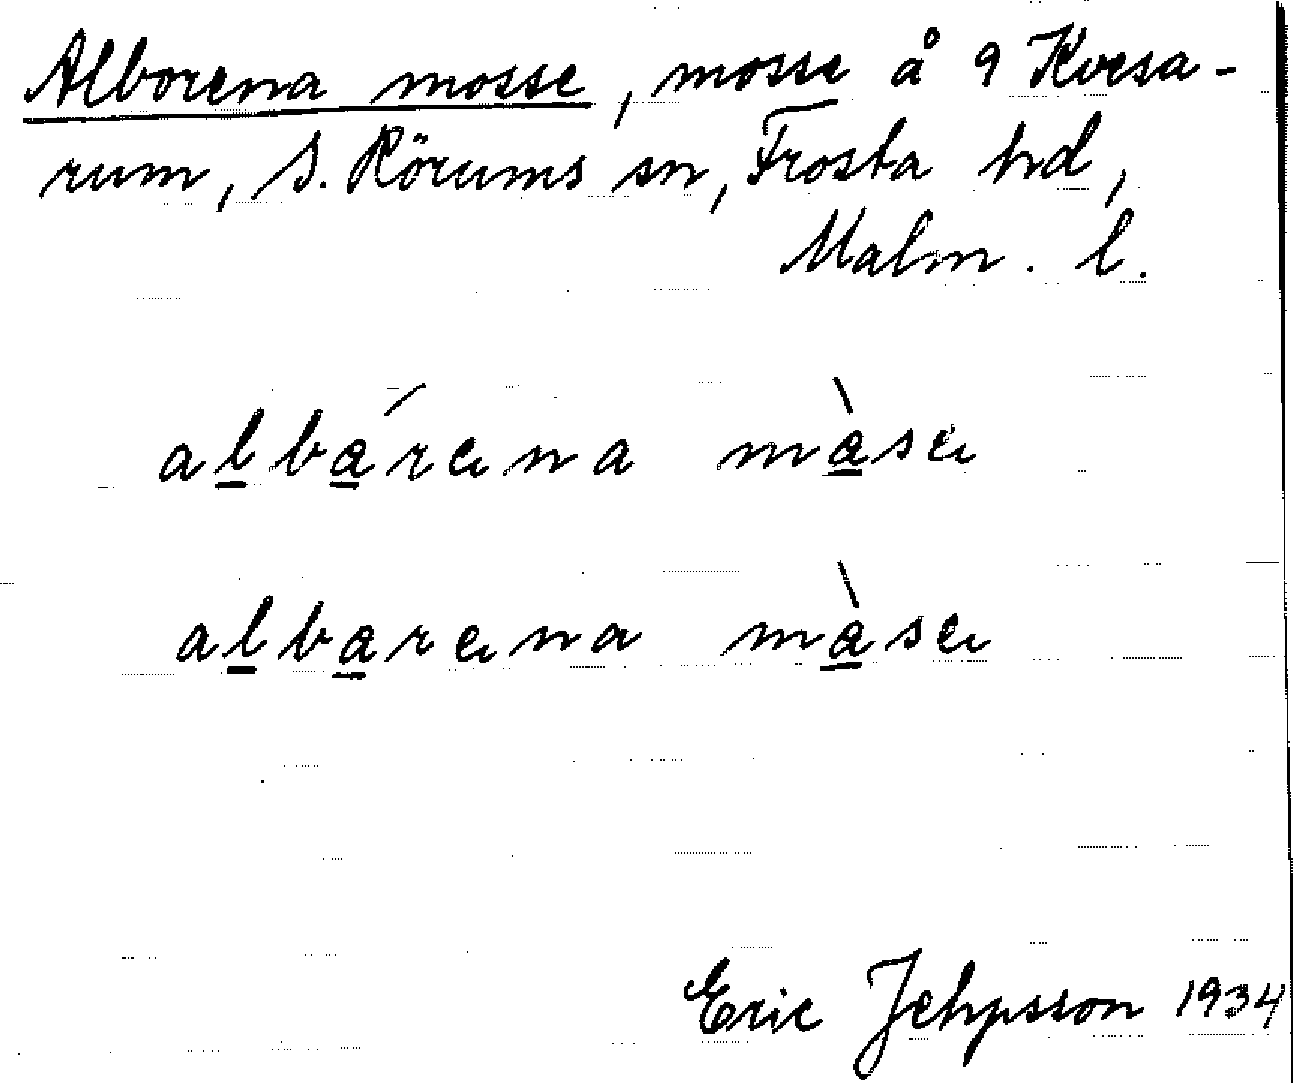 Alborena mosse, mosse å 9 Kvesa-
rum, S. Rörums sn, Frosta hd,
Malm. l.
albárena màse
albarena màse
Eric Jehpsson 1934